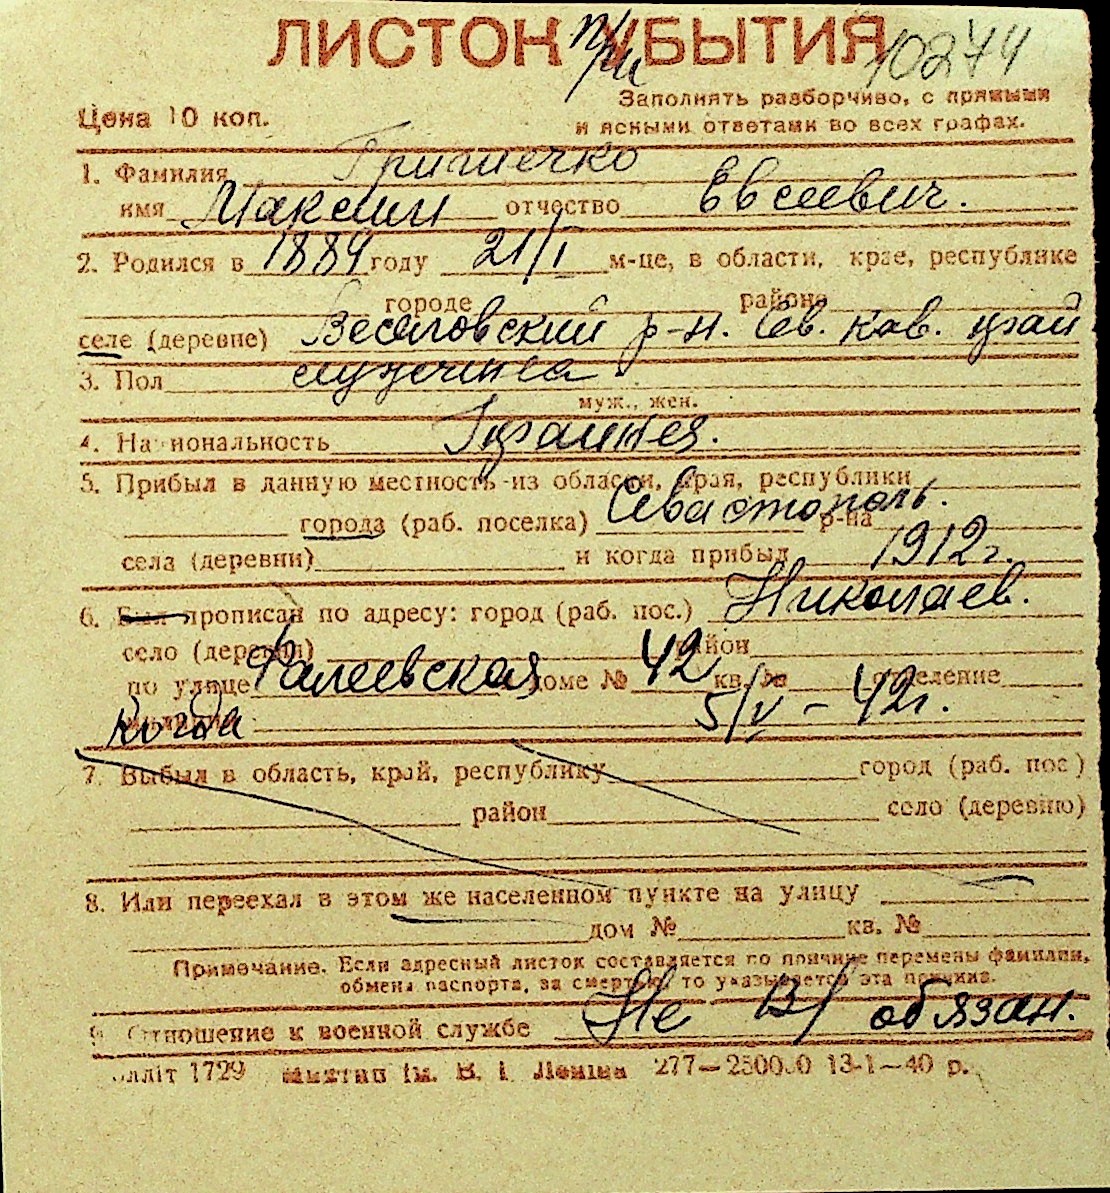 ЛИСТОК УБЫТИЯ
10274
Цена 10 коп.
Заполнять разборчиво, с прямыми
и ясными ответами во всех графах.
1. Фамилия
имя Максим отчество Евсеевич.
2. Родился в 1884 году 21/I м-це, в области, крае, республике
городе района
селе (деревне) Веселовский р-н. Сев. кав. край
3. Пол мужчина
муж., жен.
4. Национальность Украинец.
5. Прибыл в данную местность из области, края, республики
города (раб. поселка) Севастополь. р-на
села (деревни) и когда прибыл 1912 г.
6. Был прописан по адресу: город (раб. пос.) Николаев.
село (деревня) район
по улице Фалеевская доме № 42 кв. № отделение
когда 5/V - 42 г.
7. Выбыл в область, край, республику город (раб. пос.)
район село (деревню)
8. Или переехал в этом же населенном пункте на улицу
дом № кв. №
Примечание. Если адресный листок составляется по причине перемены фамилии,
обмена паспорта, за смертью, то указывается эта причина.
9. Отношение к военной службе Не В/обязан.
1729 ім. В. І. Леніна 277—250000 13-1—40 р.